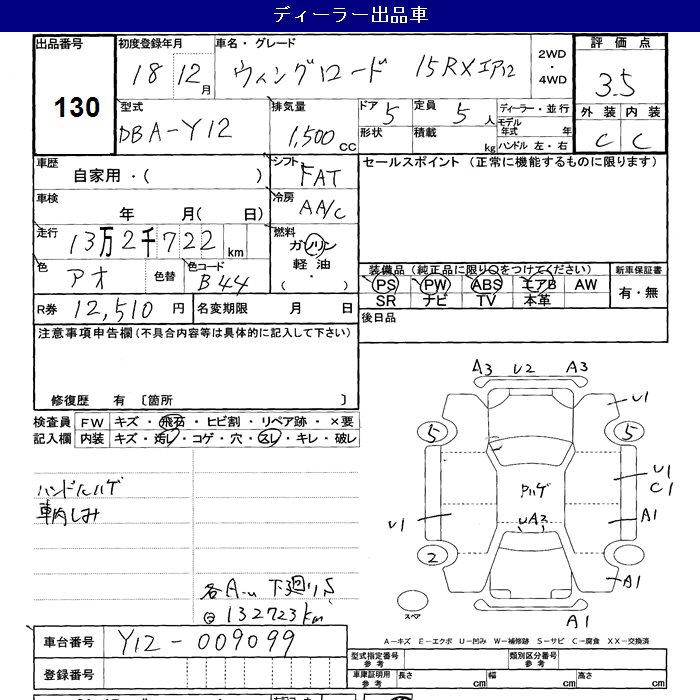 ディーラー出品車
出品番号
130
初度登録年月
18 12月
車名・グレード
ウィングロード 15RXエアロ
2WD
・
4WD
評価点
3.5
外装 内装
C C
型式
DBA-Y12
排気量
1,500 CC
ドア 5
定員 5 人
形状
積載 kg
ディーラー・並行
モデル年式 年
ハンドル 左・右
車歴
自家用・( )
シフト
FAT
セールスポイント (正常に機能するものに限ります)
車検
年 月( 日)
冷房
AA/C
走行
13万2千722km
燃料
ガソリン
軽油
・( )
色
アオ
色替
色コード
B44
装備品(純正品に限り○をつけてください)
PS PW ABS エアB AW
SR ナビ TV 本革
新車保証書
有・無
R券 12,510 円
名変期限 月 日
後日品
注意事項申告欄(不具合内容等は具体的に記入して下さい)
修復歴 有 〔箇所 〕
検査員記入欄
FW キズ・飛石・ヒビ割・リペア跡・×要
内装 キズ・汚れ・コゲ・穴・スレ・キレ・破レ
ハンドルハゲ
車内しみ
各A-u 下廻りS
目132723km
A3 U2 A3
U1
5 5
U1
C1
Pハゲ
U1
UA3
A1
2
A1
スペア
A1
A-キズ E-エクボ U-凹み W-補修跡 S-サビ C-腐食 XX-交換済
車台番号 Y12-009099
登録番号
型式指定番号
参考
類別区分番号
参考
車庫証明用
参考
長さ cm 幅 cm 高さ cm